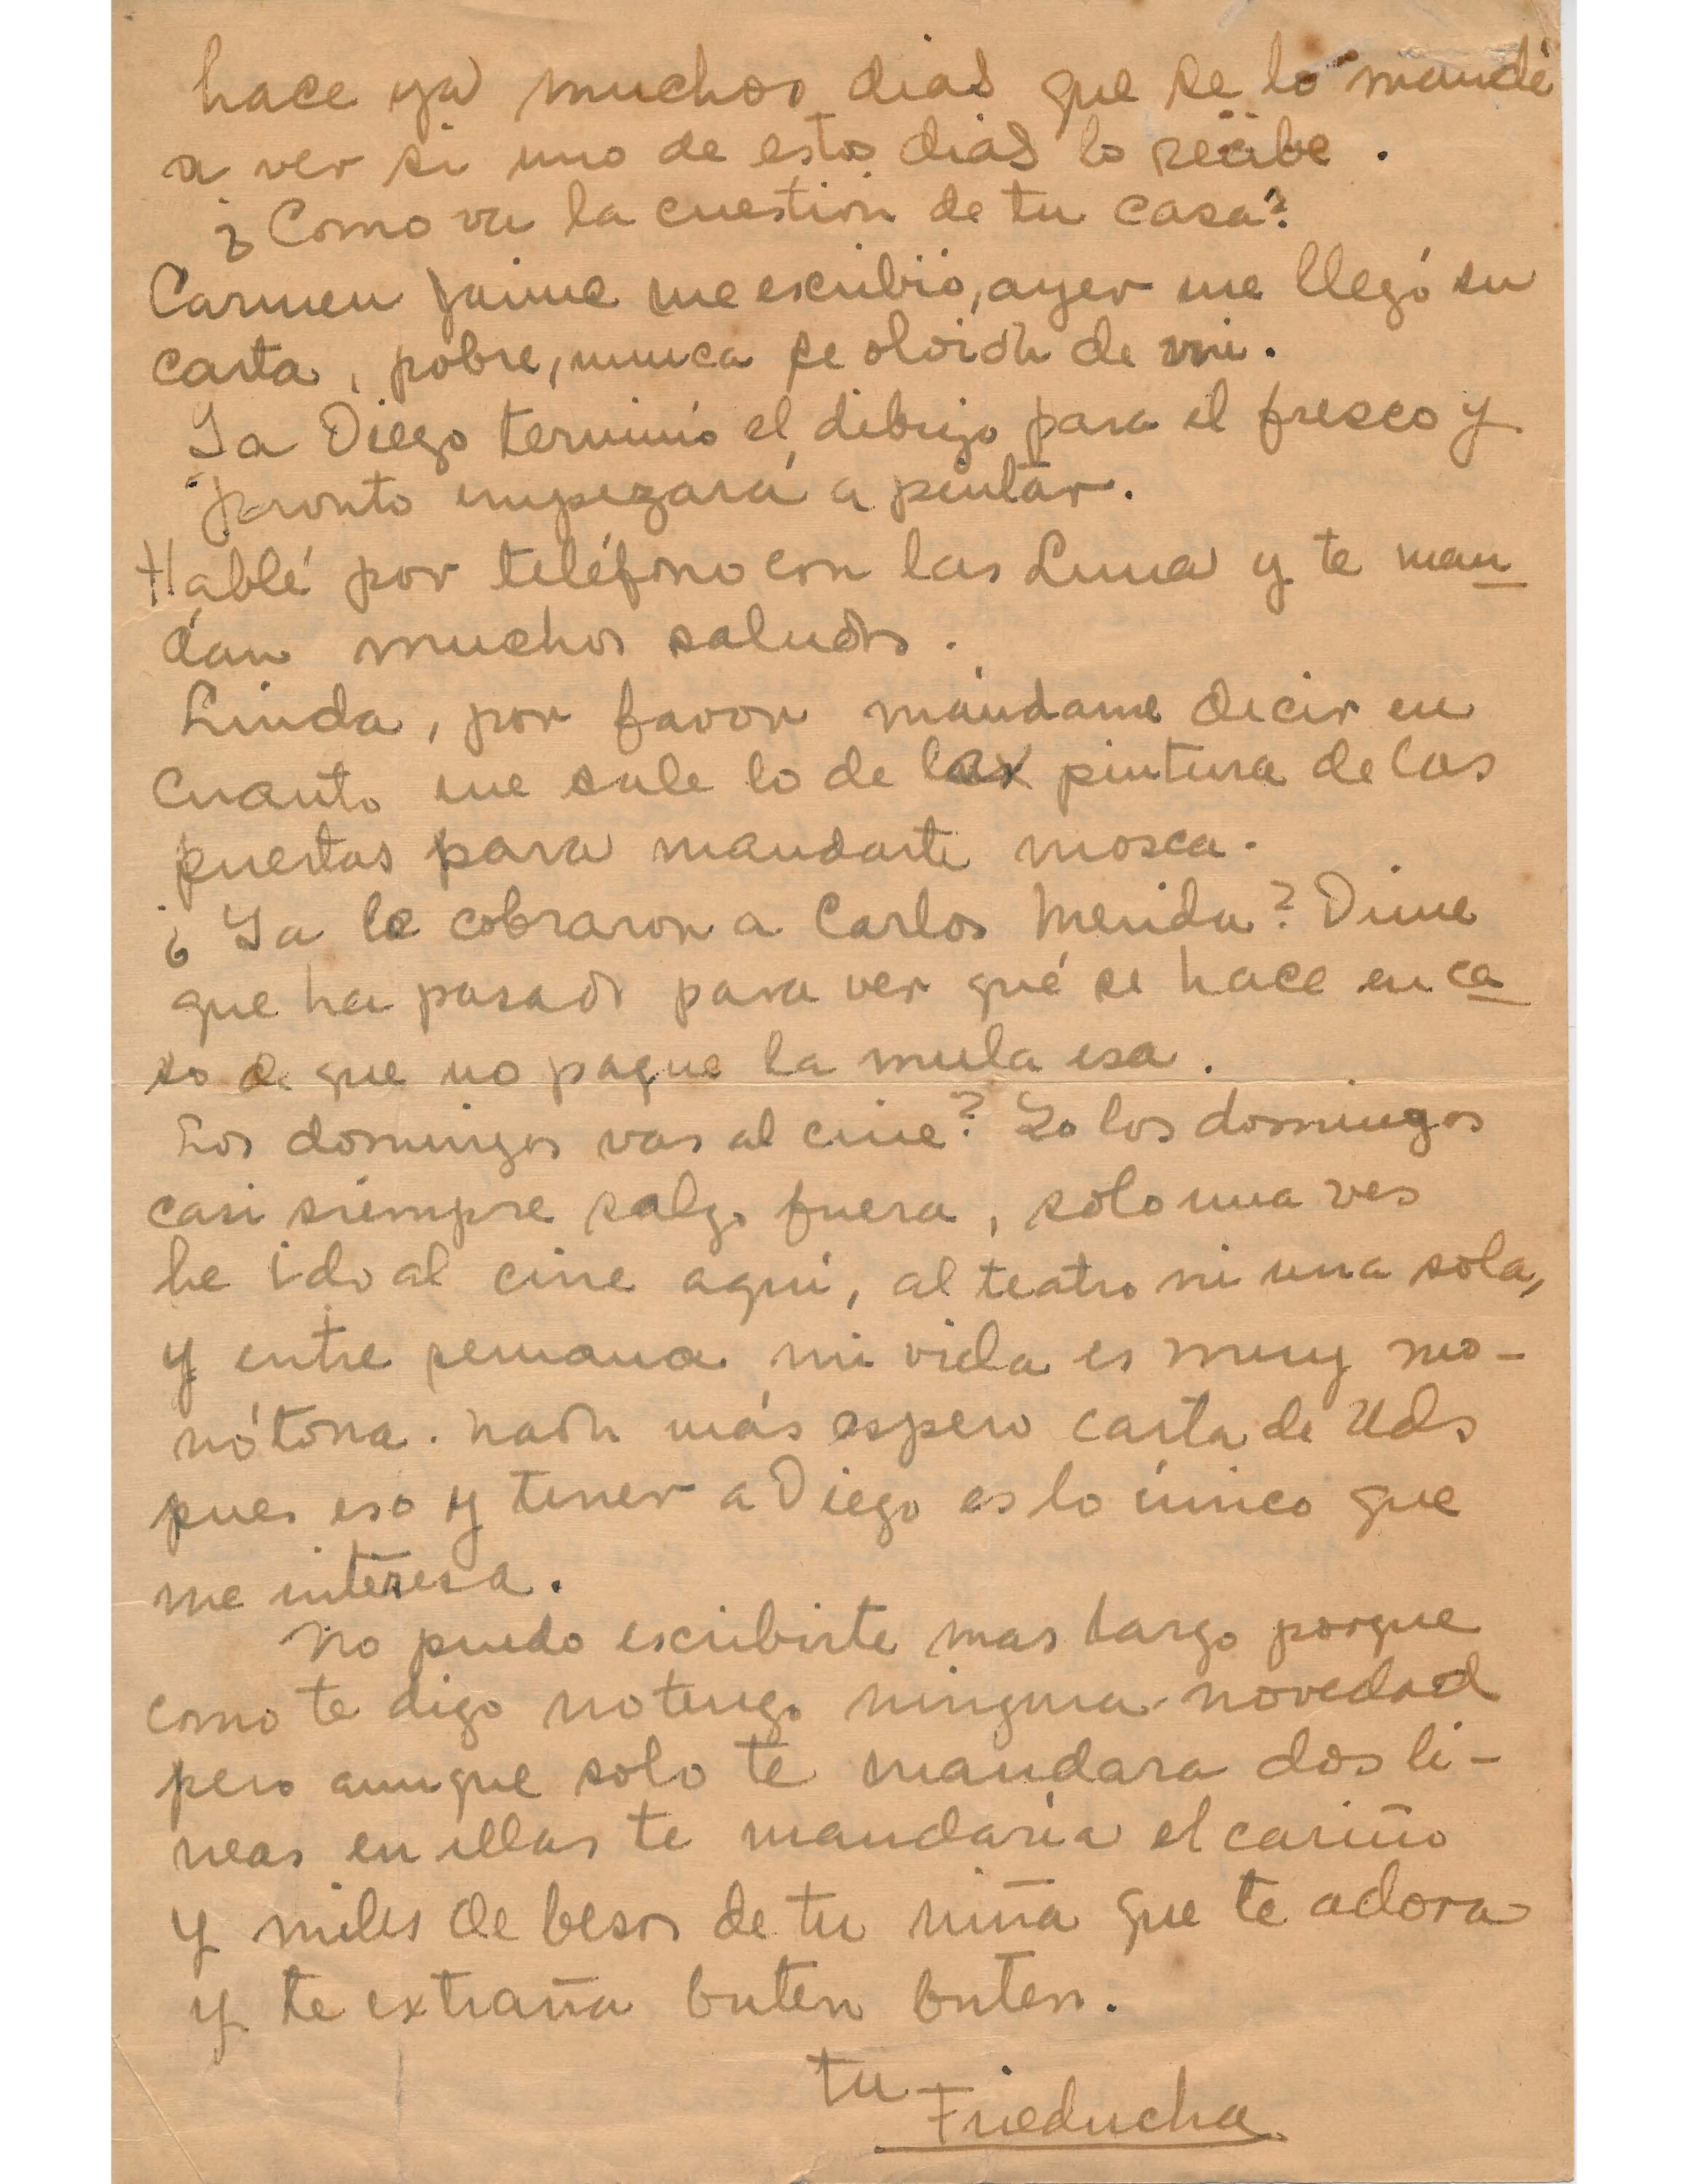 hace ya muchos dias que se lo mandé
a ver si uno de estos dias lo recibe.
¿Como va la cuestión de tu casa?
Carmen Jaime me escribió, ayer me llegó su
carta, pobre, nunca se olvida de mi.
Ya Diego terminó el dibujo para el fresco y
pronto empezará a pintar.
Hablé por teléfono con las Luna y te man
dan muchos saludos.
Linda, por favor mándame decir en
cuanto me sale lo de la pintura de las
puertas para mandarte mosca.
¿Ya le cobraron a Carlos Merida? Dime
que ha pasado para ver qué se hace en ca
so de que no pague la mula esa.
Los domingos vas al cine? Yo los domingos
casi siempre salgo fuera, solo una ves
he ido al cine aquí, al teatro ni una sola,
y entre semana mi vida es muy mo-
nótona. nada más espero carta de Uds
pues eso y tener a Diego es lo único que
me interesa.
No puedo escribirte mas largo porque
como te digo no tengo ninguna novedad
pero aunque solo te mandara dos li-
neas en ellas te mandaría el cariño
y miles de besos de tu niña que te adora
y te extraña buten buten.
tu
Frieducha